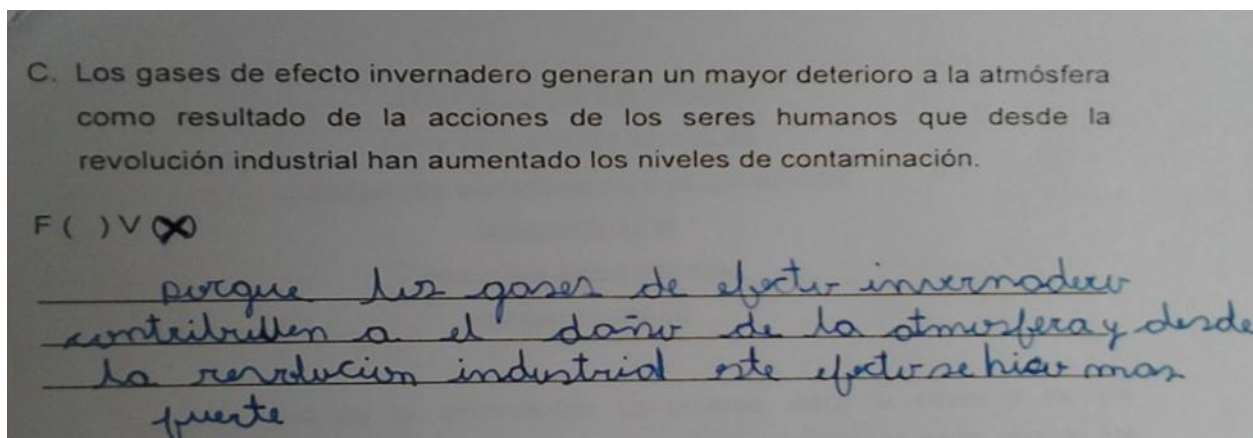 C. Los gases de efecto invernadero generan un mayor deterioro a la atmósfera
como resultado de la acciones de los seres humanos que desde la
revolución industrial han aumentado los niveles de contaminación.
F ( ) V (X)
porque los gases de efecto invernadero
contribullen a el daño de la atmosfera y desde
la revolucion industrial este efecto se hizo mas
fuerte